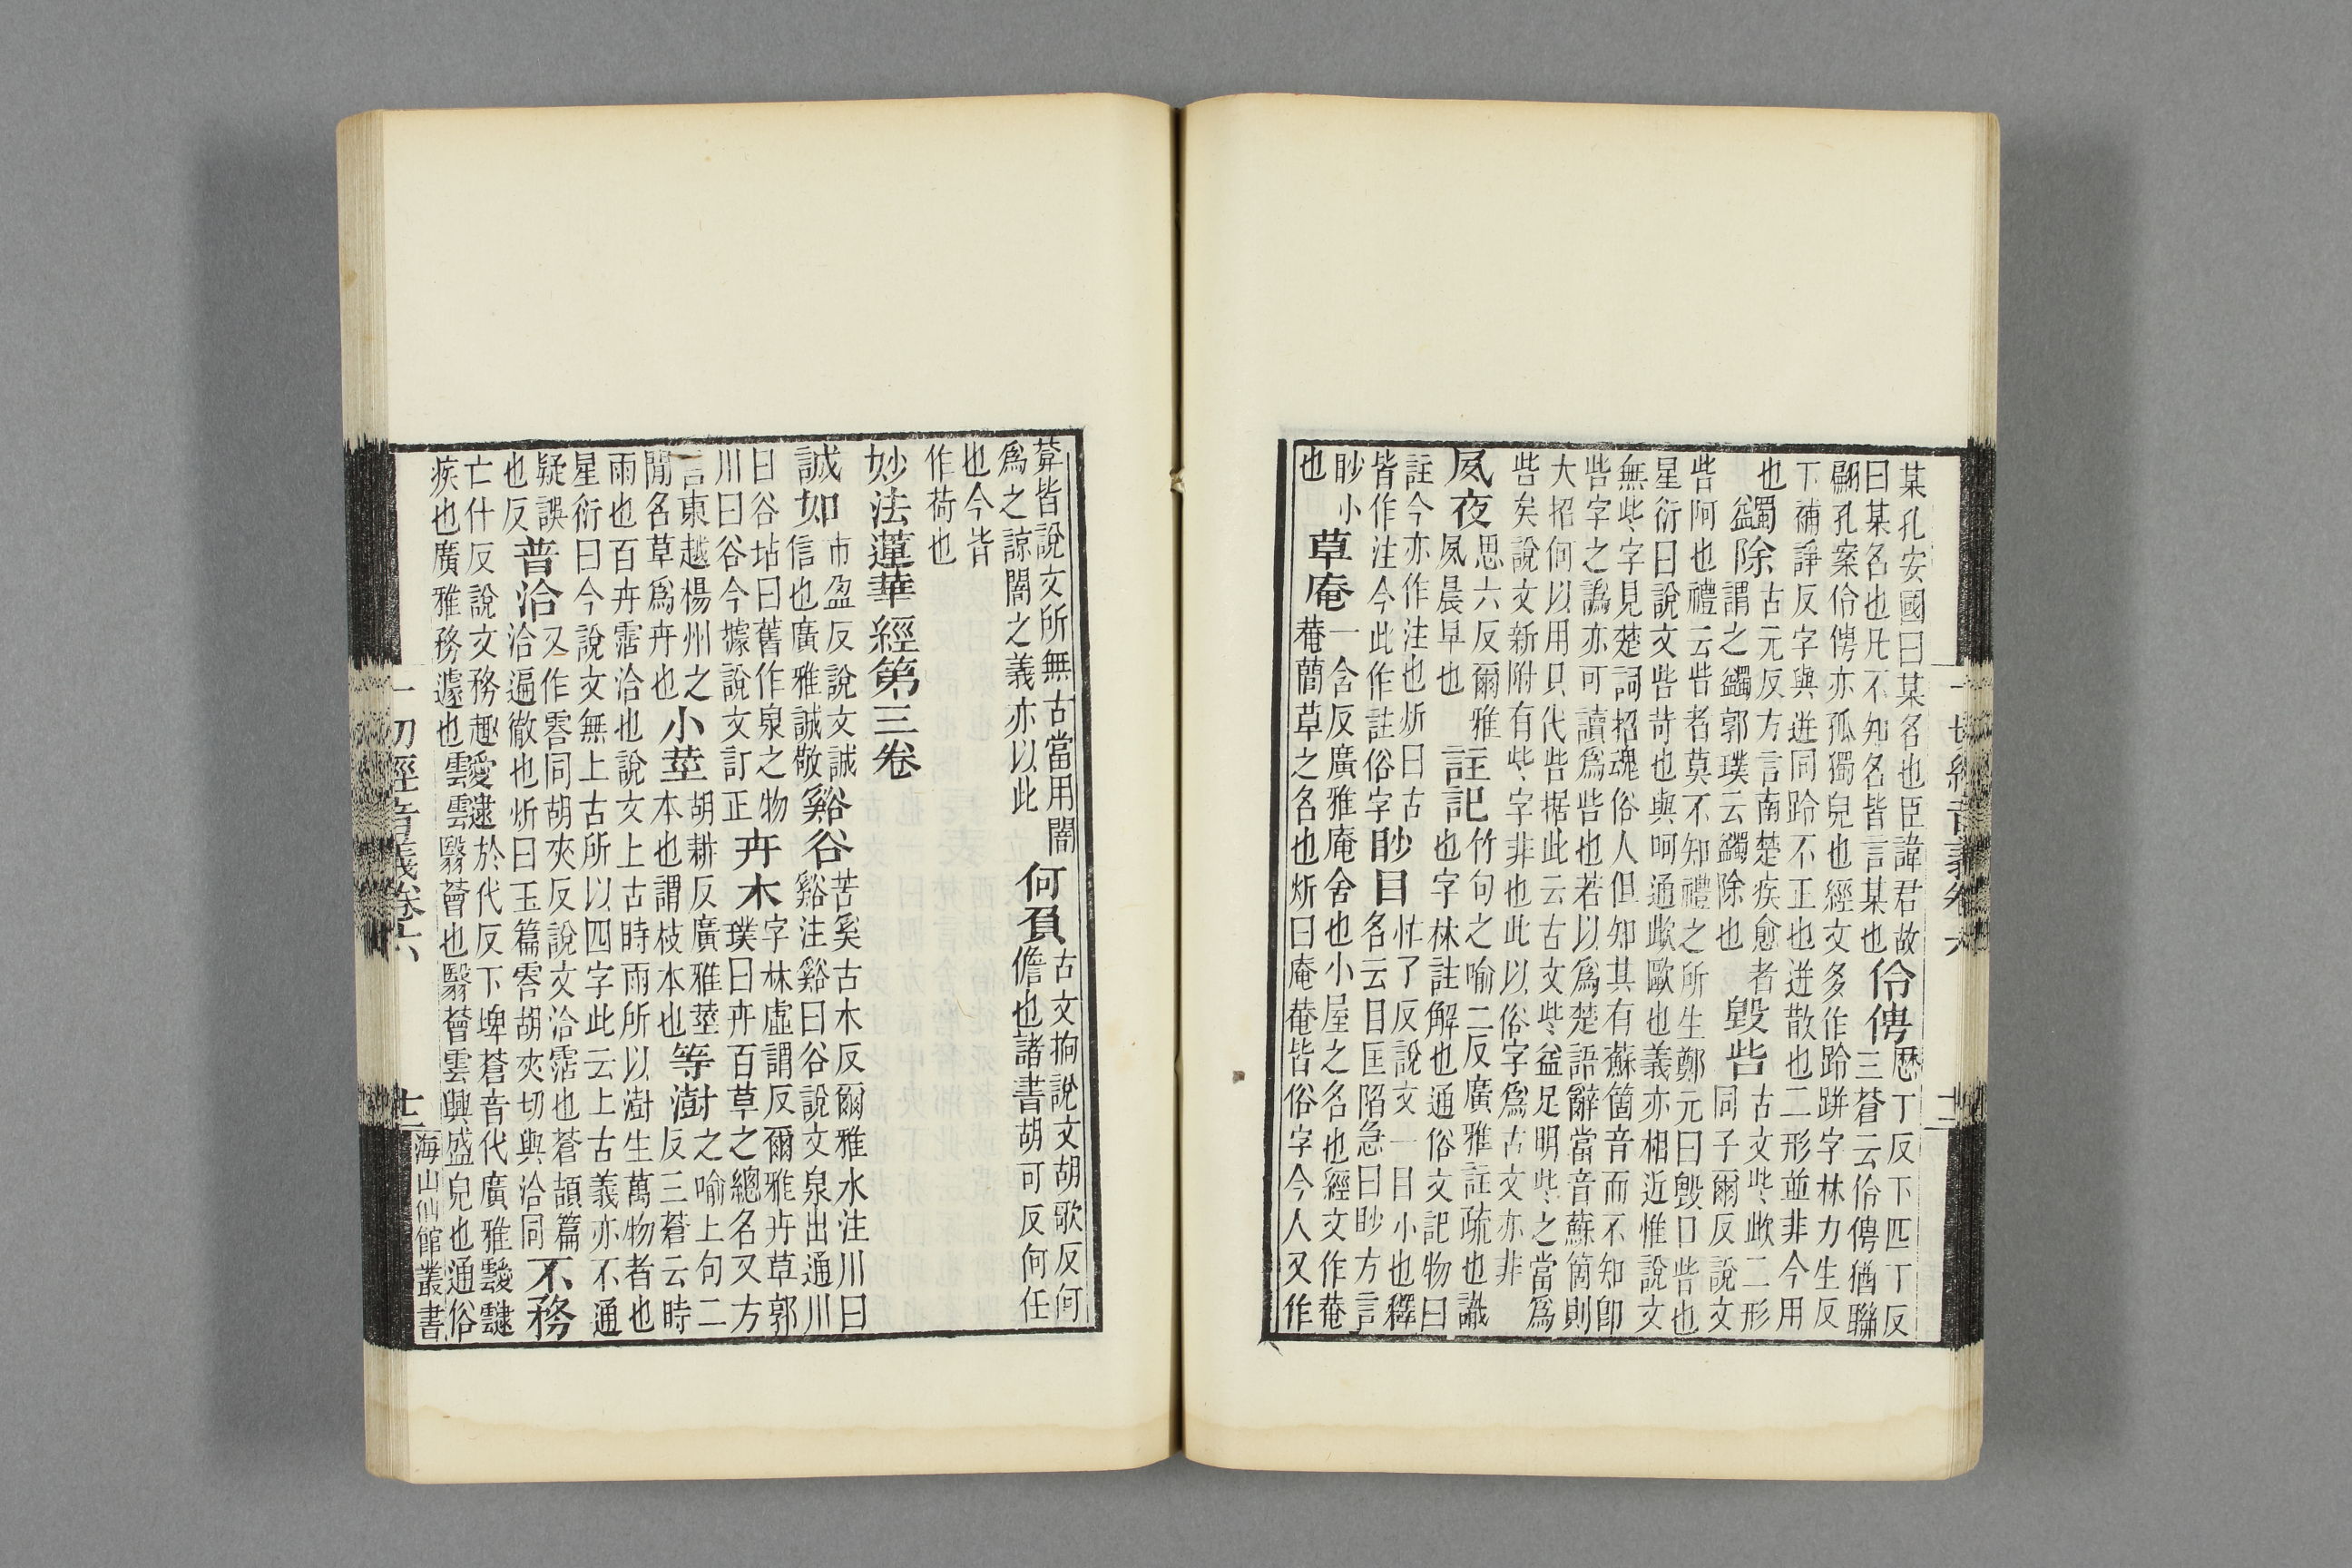 某孔安國曰某名也臣諱君故
曰某名也凡不知名皆言某也
伶俜
歷丁反下匹丁反
三蒼云伶俜猶聯
翩孔案伶俜亦孤獨皃也經文多作跉跰字林力生反
下補諍反字與迸同跉不正也迸散也二形並非今用
也
蠲除
古元反方言南楚疾愈者
謂之蠲郭璞云蠲除也
毀呰
古文些欪二形
同子爾反說文
呰呵也禮云呰者莫不知禮之所生鄭元曰毀口呰也
星衍曰說文呰苛也與呵通欪歐也義亦相近惟說文
無些字見楚詞招魂俗人但知其有蘇箇音而不知卽
呰字之譌亦可讀爲呰也若以爲楚語辭當音蘇箇則
大招何以用只代呰据此云古文些益足明些之當爲
呰矣說文新附有些字非也此以俗字爲古文亦非
夙夜
思六反爾雅
夙晨早也
註記
竹句之喻二反廣雅註疏也識
也字林註解也通俗文記物曰
註今亦作注也炘曰古
皆作注今此作註俗字
眇目
忙了反說文一目小也釋
名云目匡陷急曰眇方言
眇小
也
草庵
一含反廣雅庵舍也小屋之名也經文作菴
菴蕳草之名也炘曰庵菴皆俗字今人又作
一切經音義卷六
十二
葊皆說文所無古當用闇
爲之諒闇之義亦以此
何負
古文抲說文胡歌反何
儋也諸書胡可反何任
也今皆
作荷也
妙法蓮華經第三卷
誠如
市盈反說文誠
信也廣雅誠敬
谿谷
苦奚古木反爾雅水注川曰
谿注谿曰谷說文泉出通川
曰谷坫曰舊作泉之物
川曰谷今據說文訂正
卉木
字林虛謂反爾雅卉草郭
璞曰卉百草之總名又方
言東越楊州之
間名草爲卉也
小莖
胡耕反廣雅莖
本也謂枝本也
等澍
之喻上句二
反三蒼云時
雨也百卉霑洽也說文上古時雨所以澍生萬物者也
星衍曰今說文無上古所以四字此云上古義亦不通
疑誤
也反
普洽
又作䨐同胡夾反說文洽霑也蒼頡篇
洽遍徹也炘曰玉篇䨐胡夾切與洽同
不務
亡什反說文務趣
疾也廣雅務遽也
靉靆
於代反下埤蒼音代廣雅靉靆
雲雲翳薈也翳薈雲興盛皃也通俗
一切經音義卷六
十二
海山仙館叢書